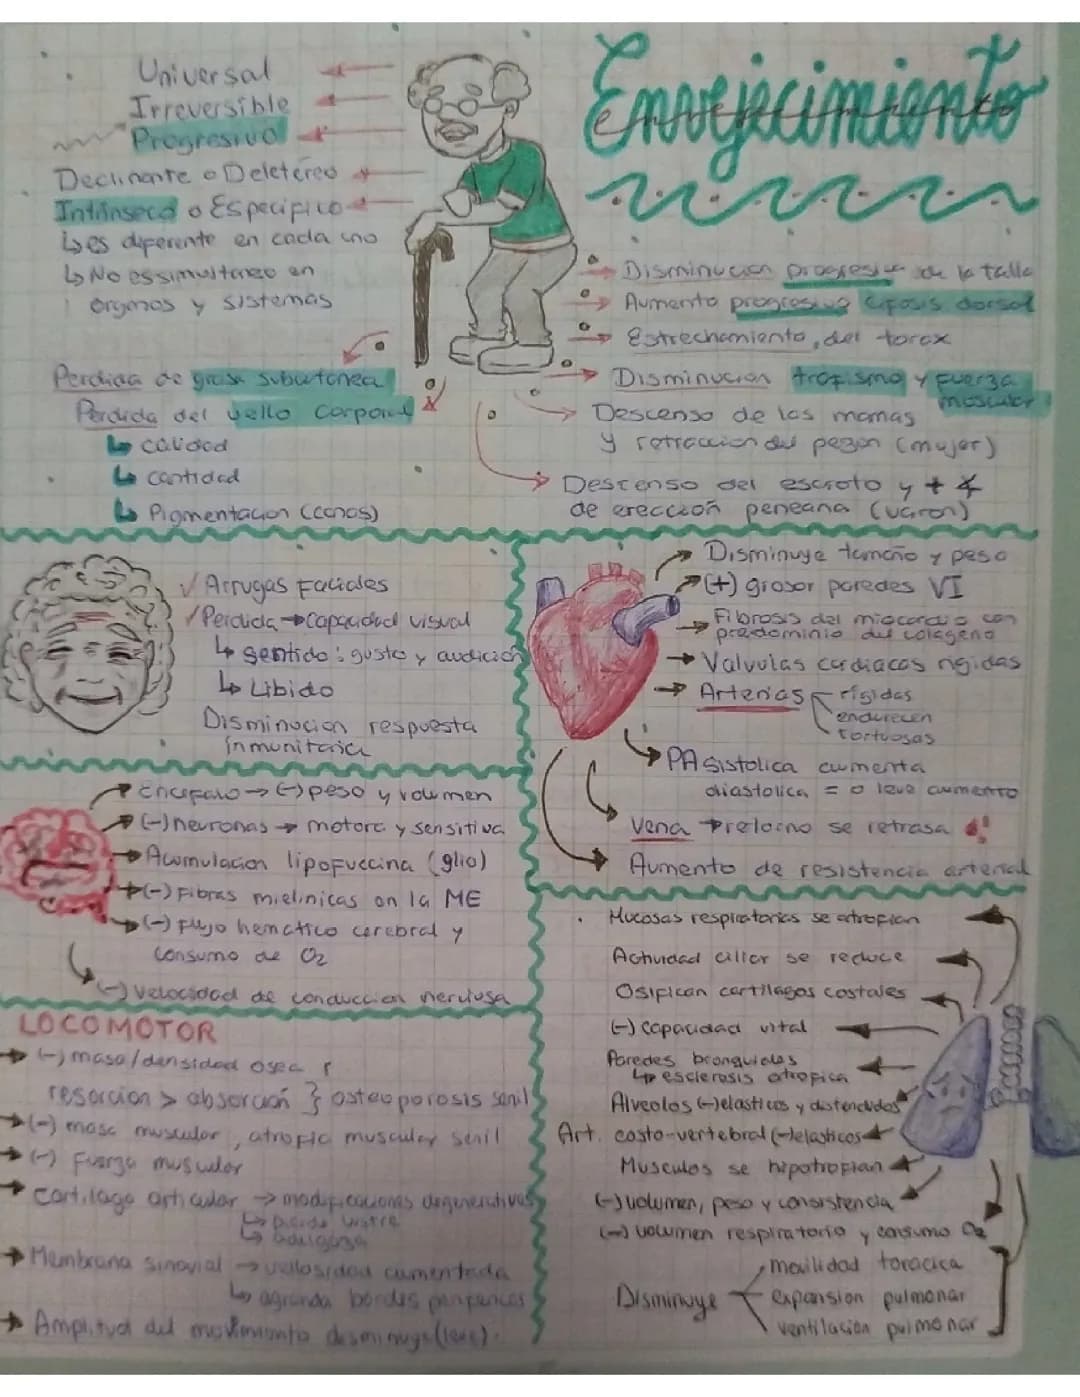 Envejecimiento
Universal
Irreversible
Progresivo
Declinante o Deletéreo
Intrínseco o Específico
↳es diferente en cada uno
↳No es simultaneo en
organos y sistemas
Perdida de grasa subcutanea
Perdida del vello corporal
↳ calidad
↳ cantidad
↳ Pigmentacion (canas)
Disminucion progresiva de la talla
Aumento progresivo cifosis dorsal
Estrechamiento del torax
Disminucion trofismo y fuerza
muscular
Descenso de las mamas
y retraccion del pezon (mujer)
Descenso del escroto y +
de erección peneana (varon)
✓ Arrugas Faciales
✓ Perdida → capacidad visual
↳ sentido: gusto y audicion
↳ Libido
Disminucion respuesta
inmunitaria
Disminuye tamaño y peso
(+) grosor paredes VI
Fibrosis del miocardio con
predominio del colageno
Valvulas cardiacas rigidas
Arterias rígidas
endurecen
tortuosas
PA sistolica aumenta
diastolica = o leve aumento
Vena → retorno se retrasa
Aumento de resistencia arterial
Encefalo → (-) peso y volumen
(-) neuronas → motora y sensitiva
Acumulacion lipofuccina (glio)
(-) Fibras mielinicas en la ME
(-) Flujo hematico cerebral y
consumo de O2
(-) velocidad de conduccion nerviosa
LOCOMOTOR
→ (-) masa/densidad osea
resorcion > absorción } osteoporosis senil
→ (-) masa muscular, atrofia muscular senil
→ (-) Fuerza muscular
→ Cartilago articular → modificaciones degenerativas
↳ pierde lustre
↳ adelgaza
→ Membrana sinovial → vellosidad aumentada
↳ agranda bordes perifericos
→ Amplitud del movimiento disminuye (leve).
Mucosas respiratorias se atrofian
Actividad ciliar se reduce
Osifican cartilagos costales
(-) capacidad vital
Paredes bronquiales
↳ esclerosis atrofica
Alveolos (-) elasticos y distendidos
Art. costo-vertebral (-) elasticos
Musculos se hipotrofian
(-) volumen, peso y consistencia
(-) volumen respiratorio y consumo O2
Disminuye movilidad toracica
expansion pulmonar
ventilacion pulmonar